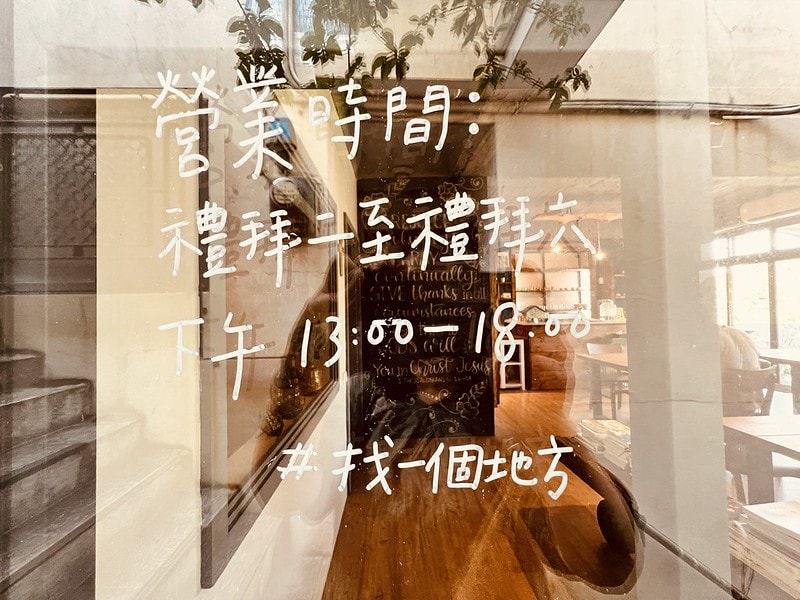 營業時間:
禮拜二至禮拜六
下午 13:00－18:00
#找一個地方
continually;
GIVE thanks in all
circumstances
You in Christ Jesus